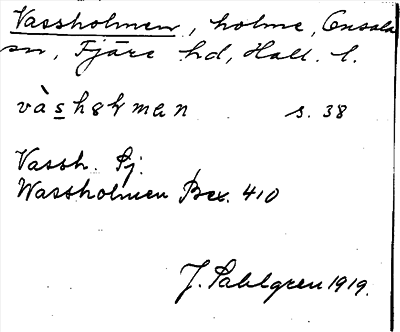 Vassholmen, holme, Onsala
sn, Fjäre hd, Hall. l.
vàshəlman s. 38
Vassh. Gj.
Wassholmen Bex. 410
J. Sahlgren 1919.